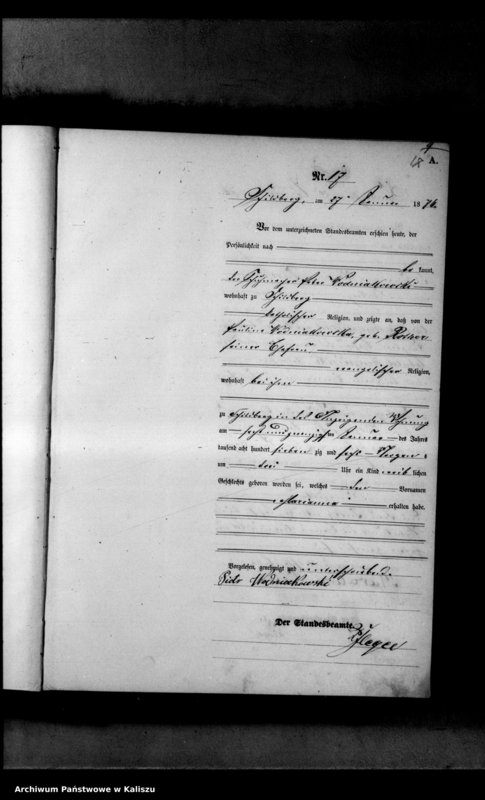 68
A.
Nr. 17
Schildberg, am 27 Januar 1876.
Vor dem unterzeichneten Standesbeamten erschien heute, der
Persönlichkeit nach
be kannt,
der Schuhmacher Peter Wodniakowski
wohnhaft zu Schildberg
katholischer Religion, und zeigte an, daß von der
Pauline Wodniakowska, geb.
seiner Ehefrau
evangelischer Religion,
wohnhaft bei ihm
zu Schildberg in des Anzeigenden Wohnung
am sechs und zwanzigsten Januar des Jahres
tausend acht hundert sieben zig und sechs Morgens
um drei Uhr ein Kind weib lichen
Geschlechts geboren worden sei, welches den Vornamen
Marianna erhalten habe.
Vorgelesen, genehmigt und unterschrieben.
Piotr Wodniakowski
Der Standesbeamte.
Archiwum Państwowe w Kaliszu